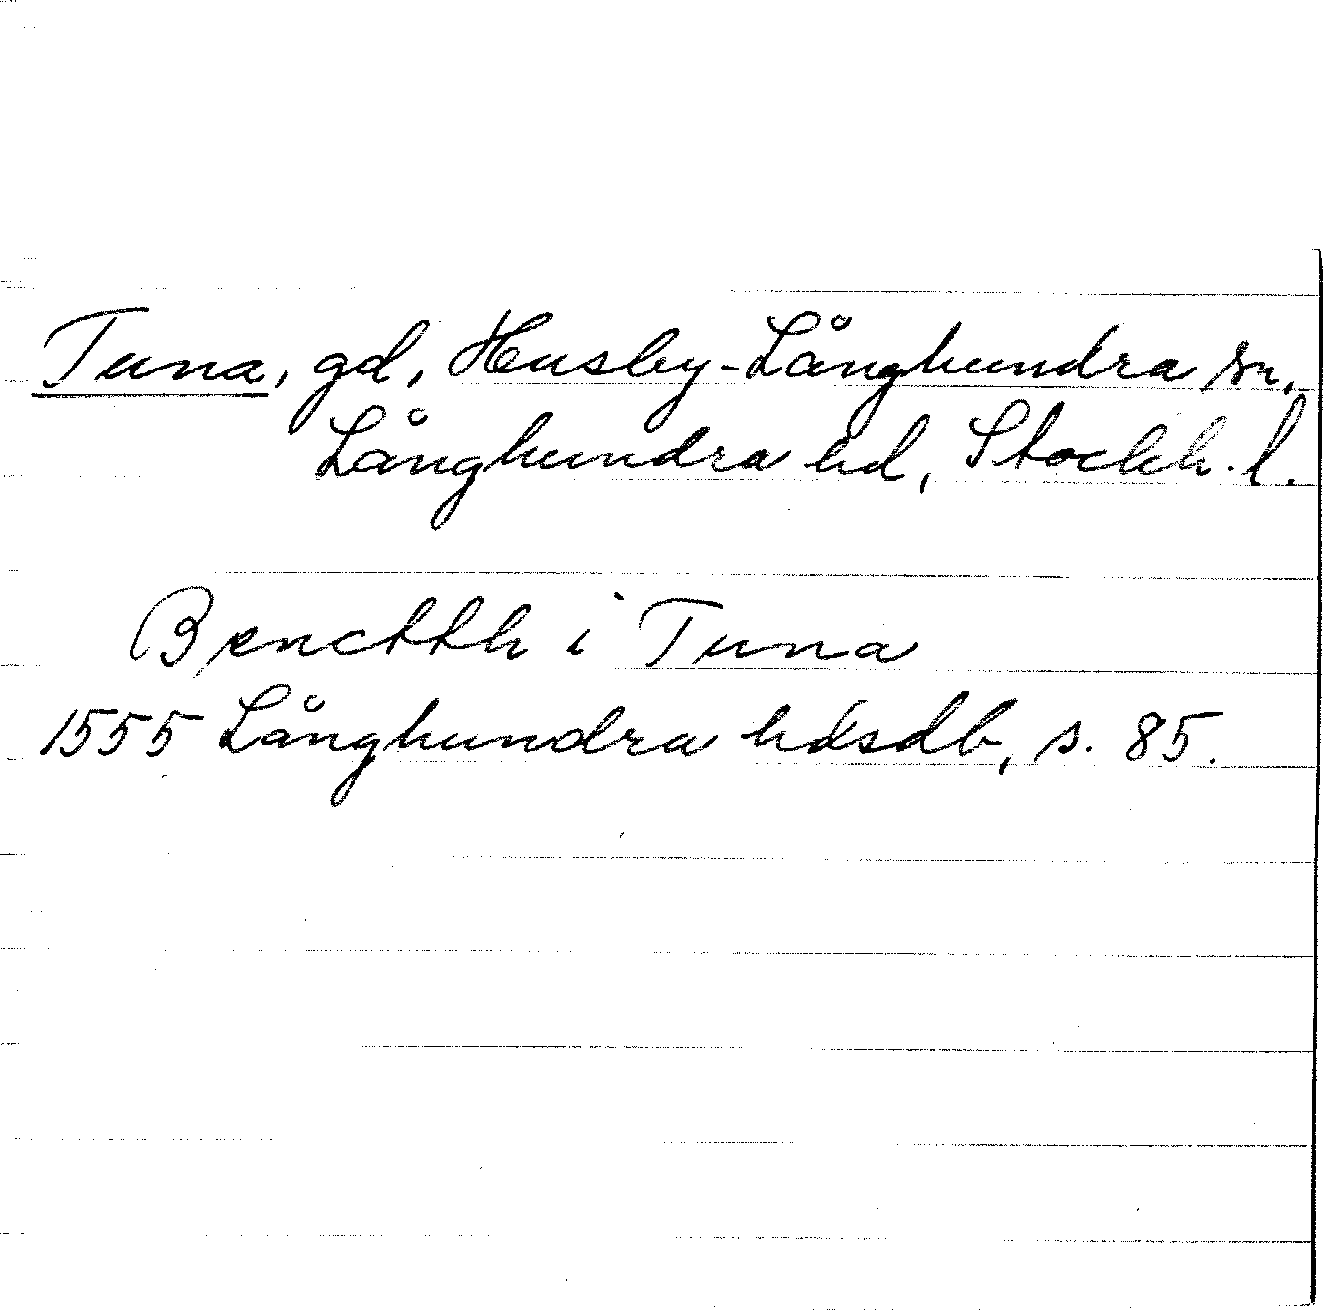 Tuna, gd, Husby-Långhundra sn,
Långhundra hd, Stockh. l.
Benctth i Tuna
1555 Långhundra hdsdb, s. 85.